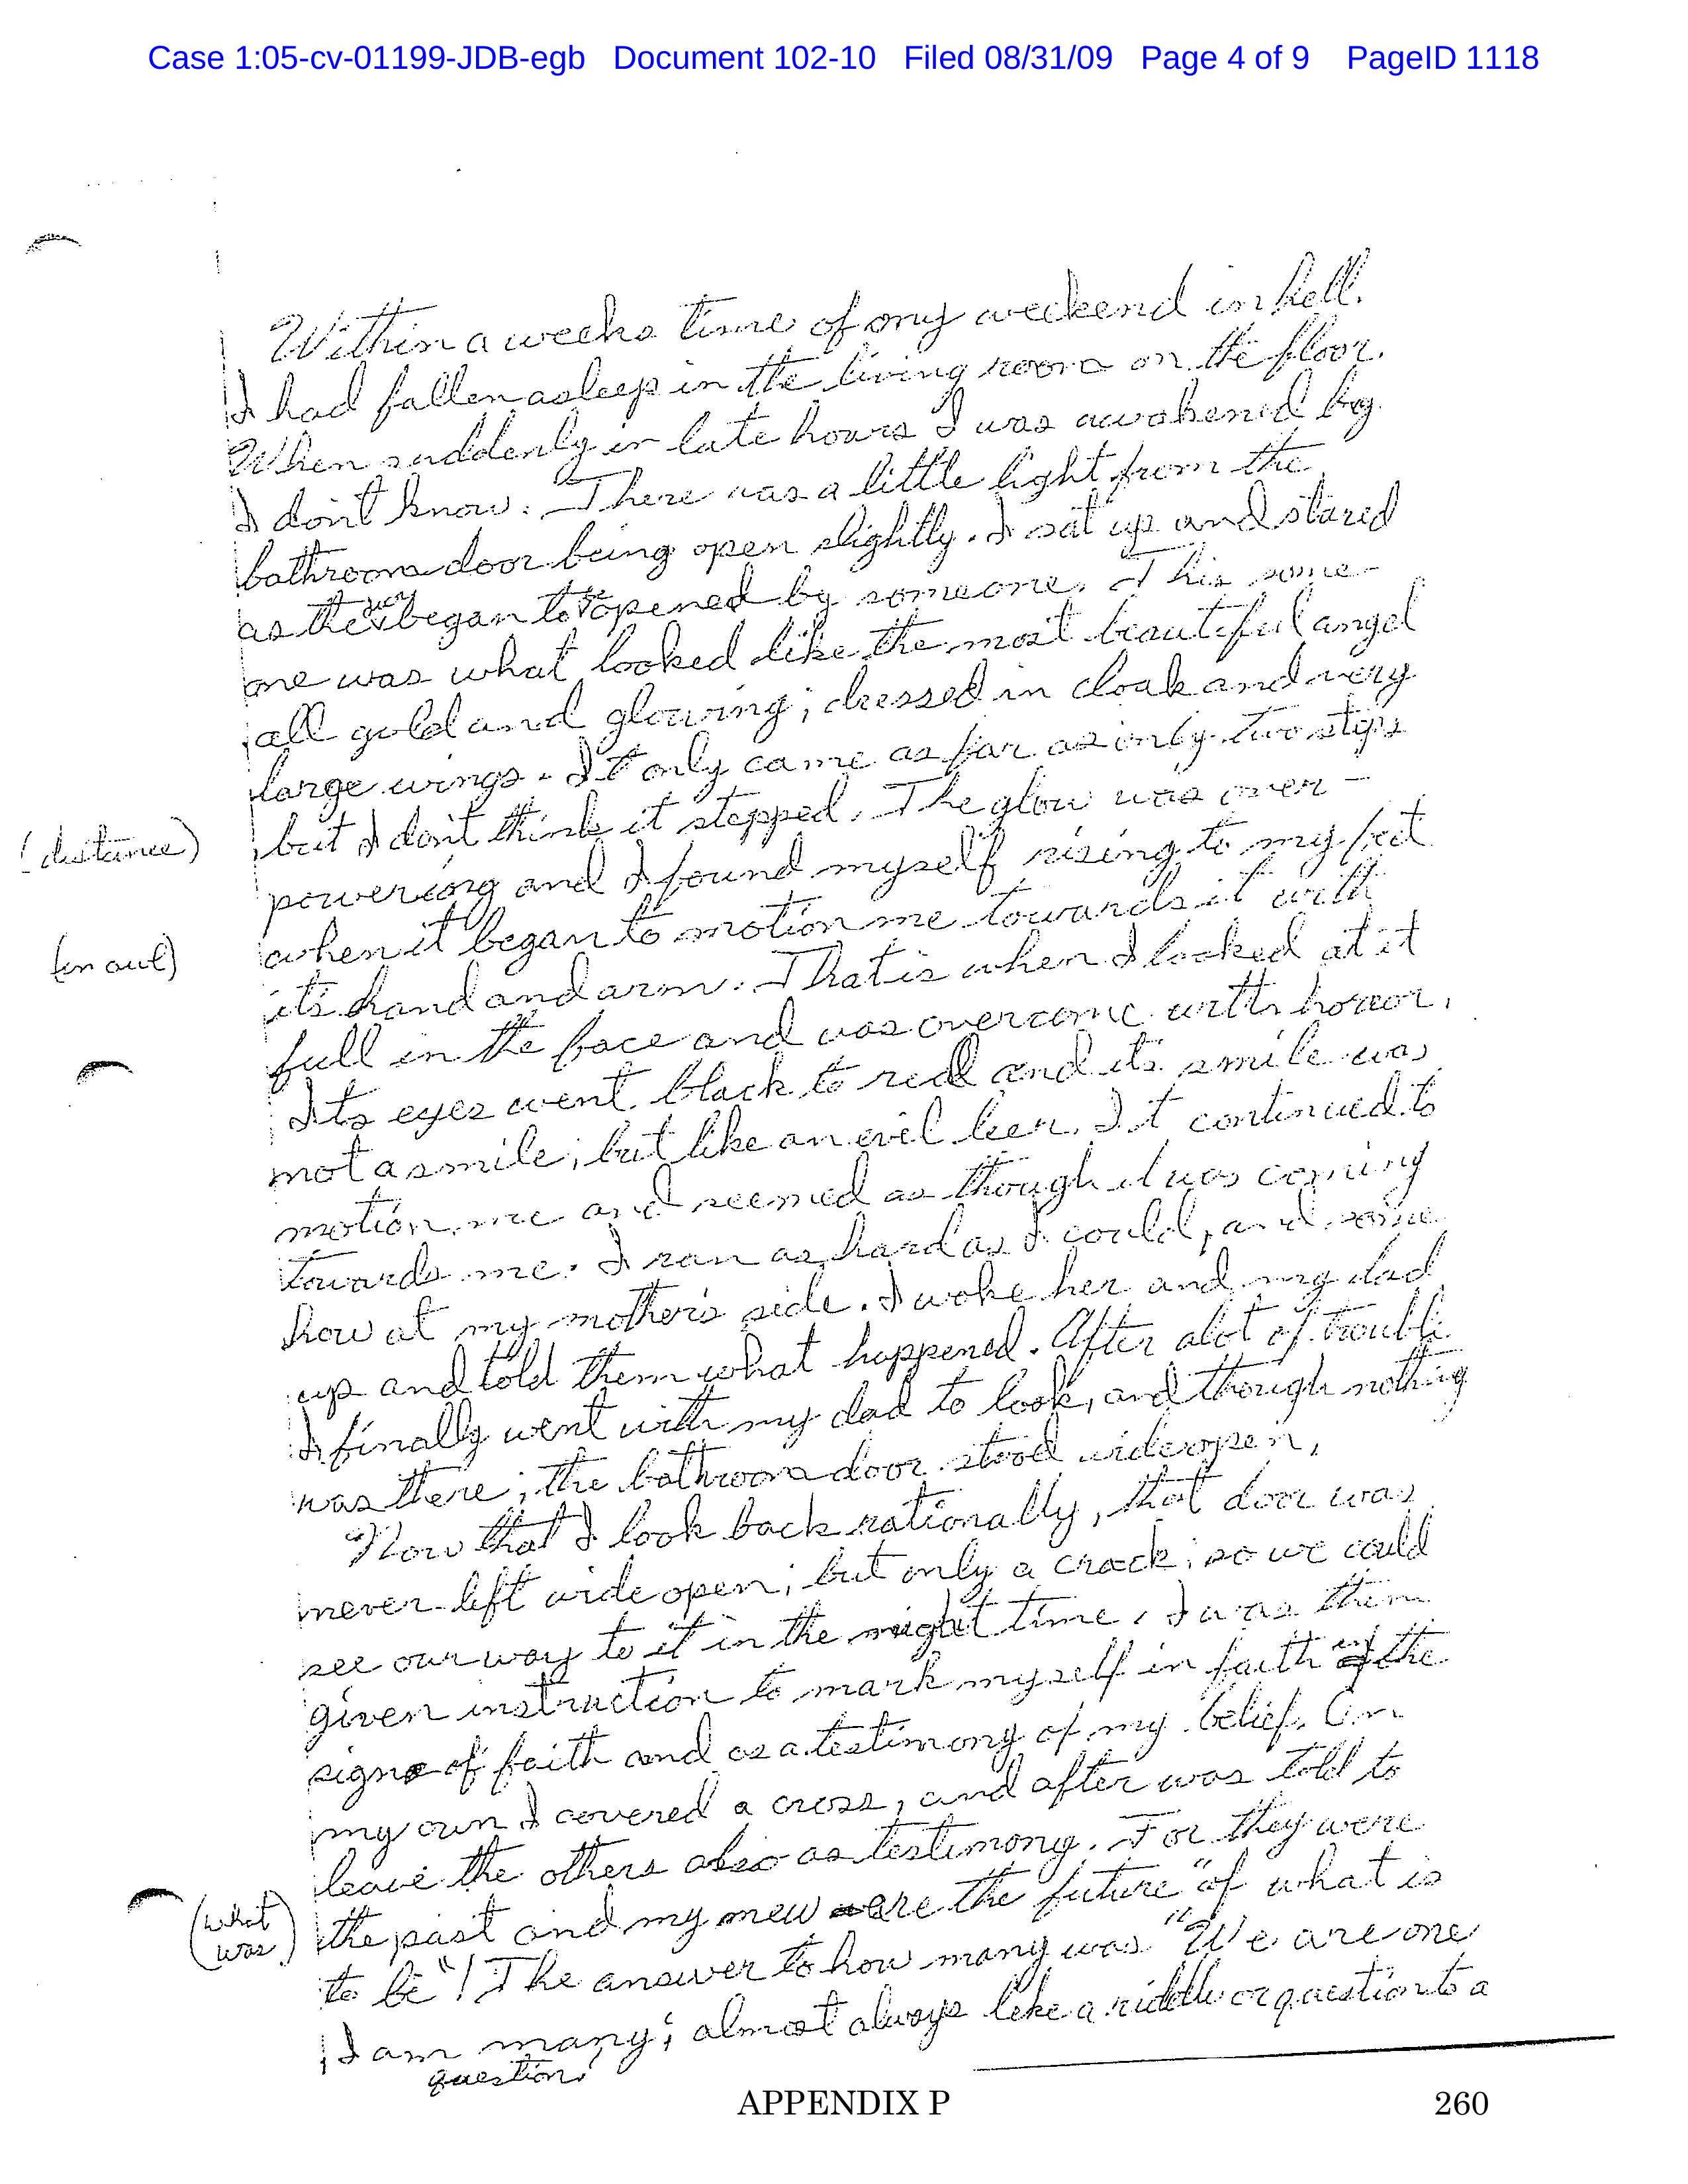 Case 1:05-cv-01199-JDB-egb Document 102-10 Filed 08/31/09 Page 4 of 9 PageID 1118
Within a weeks time of my weekend in hell.
I had fallen asleep in the living room on the floor.
When suddenly in late hours I was awakened by
I don't know. There was a little light from the
bathroom door being open slightly. I sat up and stared
as the door began to be opened by someone. This some-
one was what looked like the most beautiful angel
all gold and glowing; dressed in cloak and very
large wings. It only came as far as only two steps
(distance) but I don't think it stepped. The glow was over-
powering and I found myself rising to my feet
(in out) when it began to motion me towards it with
it's hand and arm. That is when I looked at it
full in the face and was overcome with horror.
Its eyes went black to red and its smile was
not a smile; but like an evil leer. It continued to
motion me and seemed as though it was coming
towards me. I ran as hard as I could, and some
how at my mother's side. I woke her and my dad
up and told them what happened. After alot of trouble
I finally went with my dad to look, and though nothing
was there; the bathroom door stood wide open.
Now that I look back rationally, that door was
never left wide open; but only a crack; so we could
see our way to it in the night time. I was then
given instruction to mark myself in faith the
signs of faith and as a testimony of my belief. On
my own I covered a cross, and after was told to
leave the others also as testimony. For they were
(what was) the past and my new are the future "of what is
to be"! The answer to how many was "We are one
I am many; almost always like a riddle or question to a
question.
APPENDIX P 260